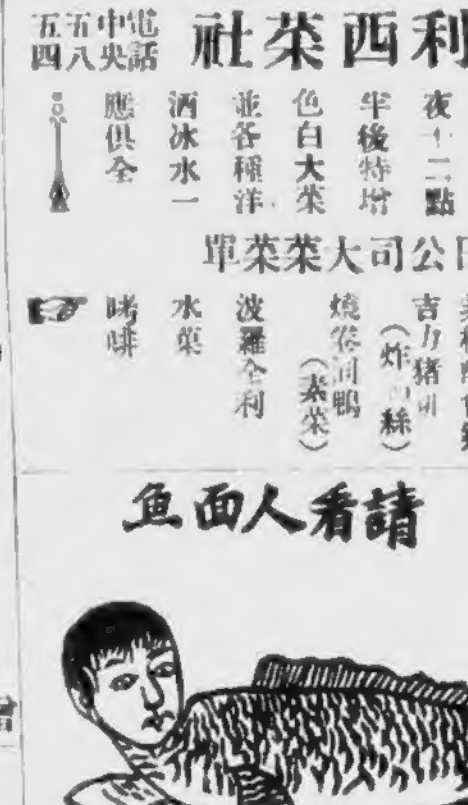 利西菜社
電話
中央
五八
五四
夜十二點
半後特增
色白大菜
並各種洋
酒冰水一
應俱全
公司大菜菜單
吉力猪
（炸 絲）
燒卷筒鴨
（素菜）
波羅全利
水菓
咖啡
請看人面魚